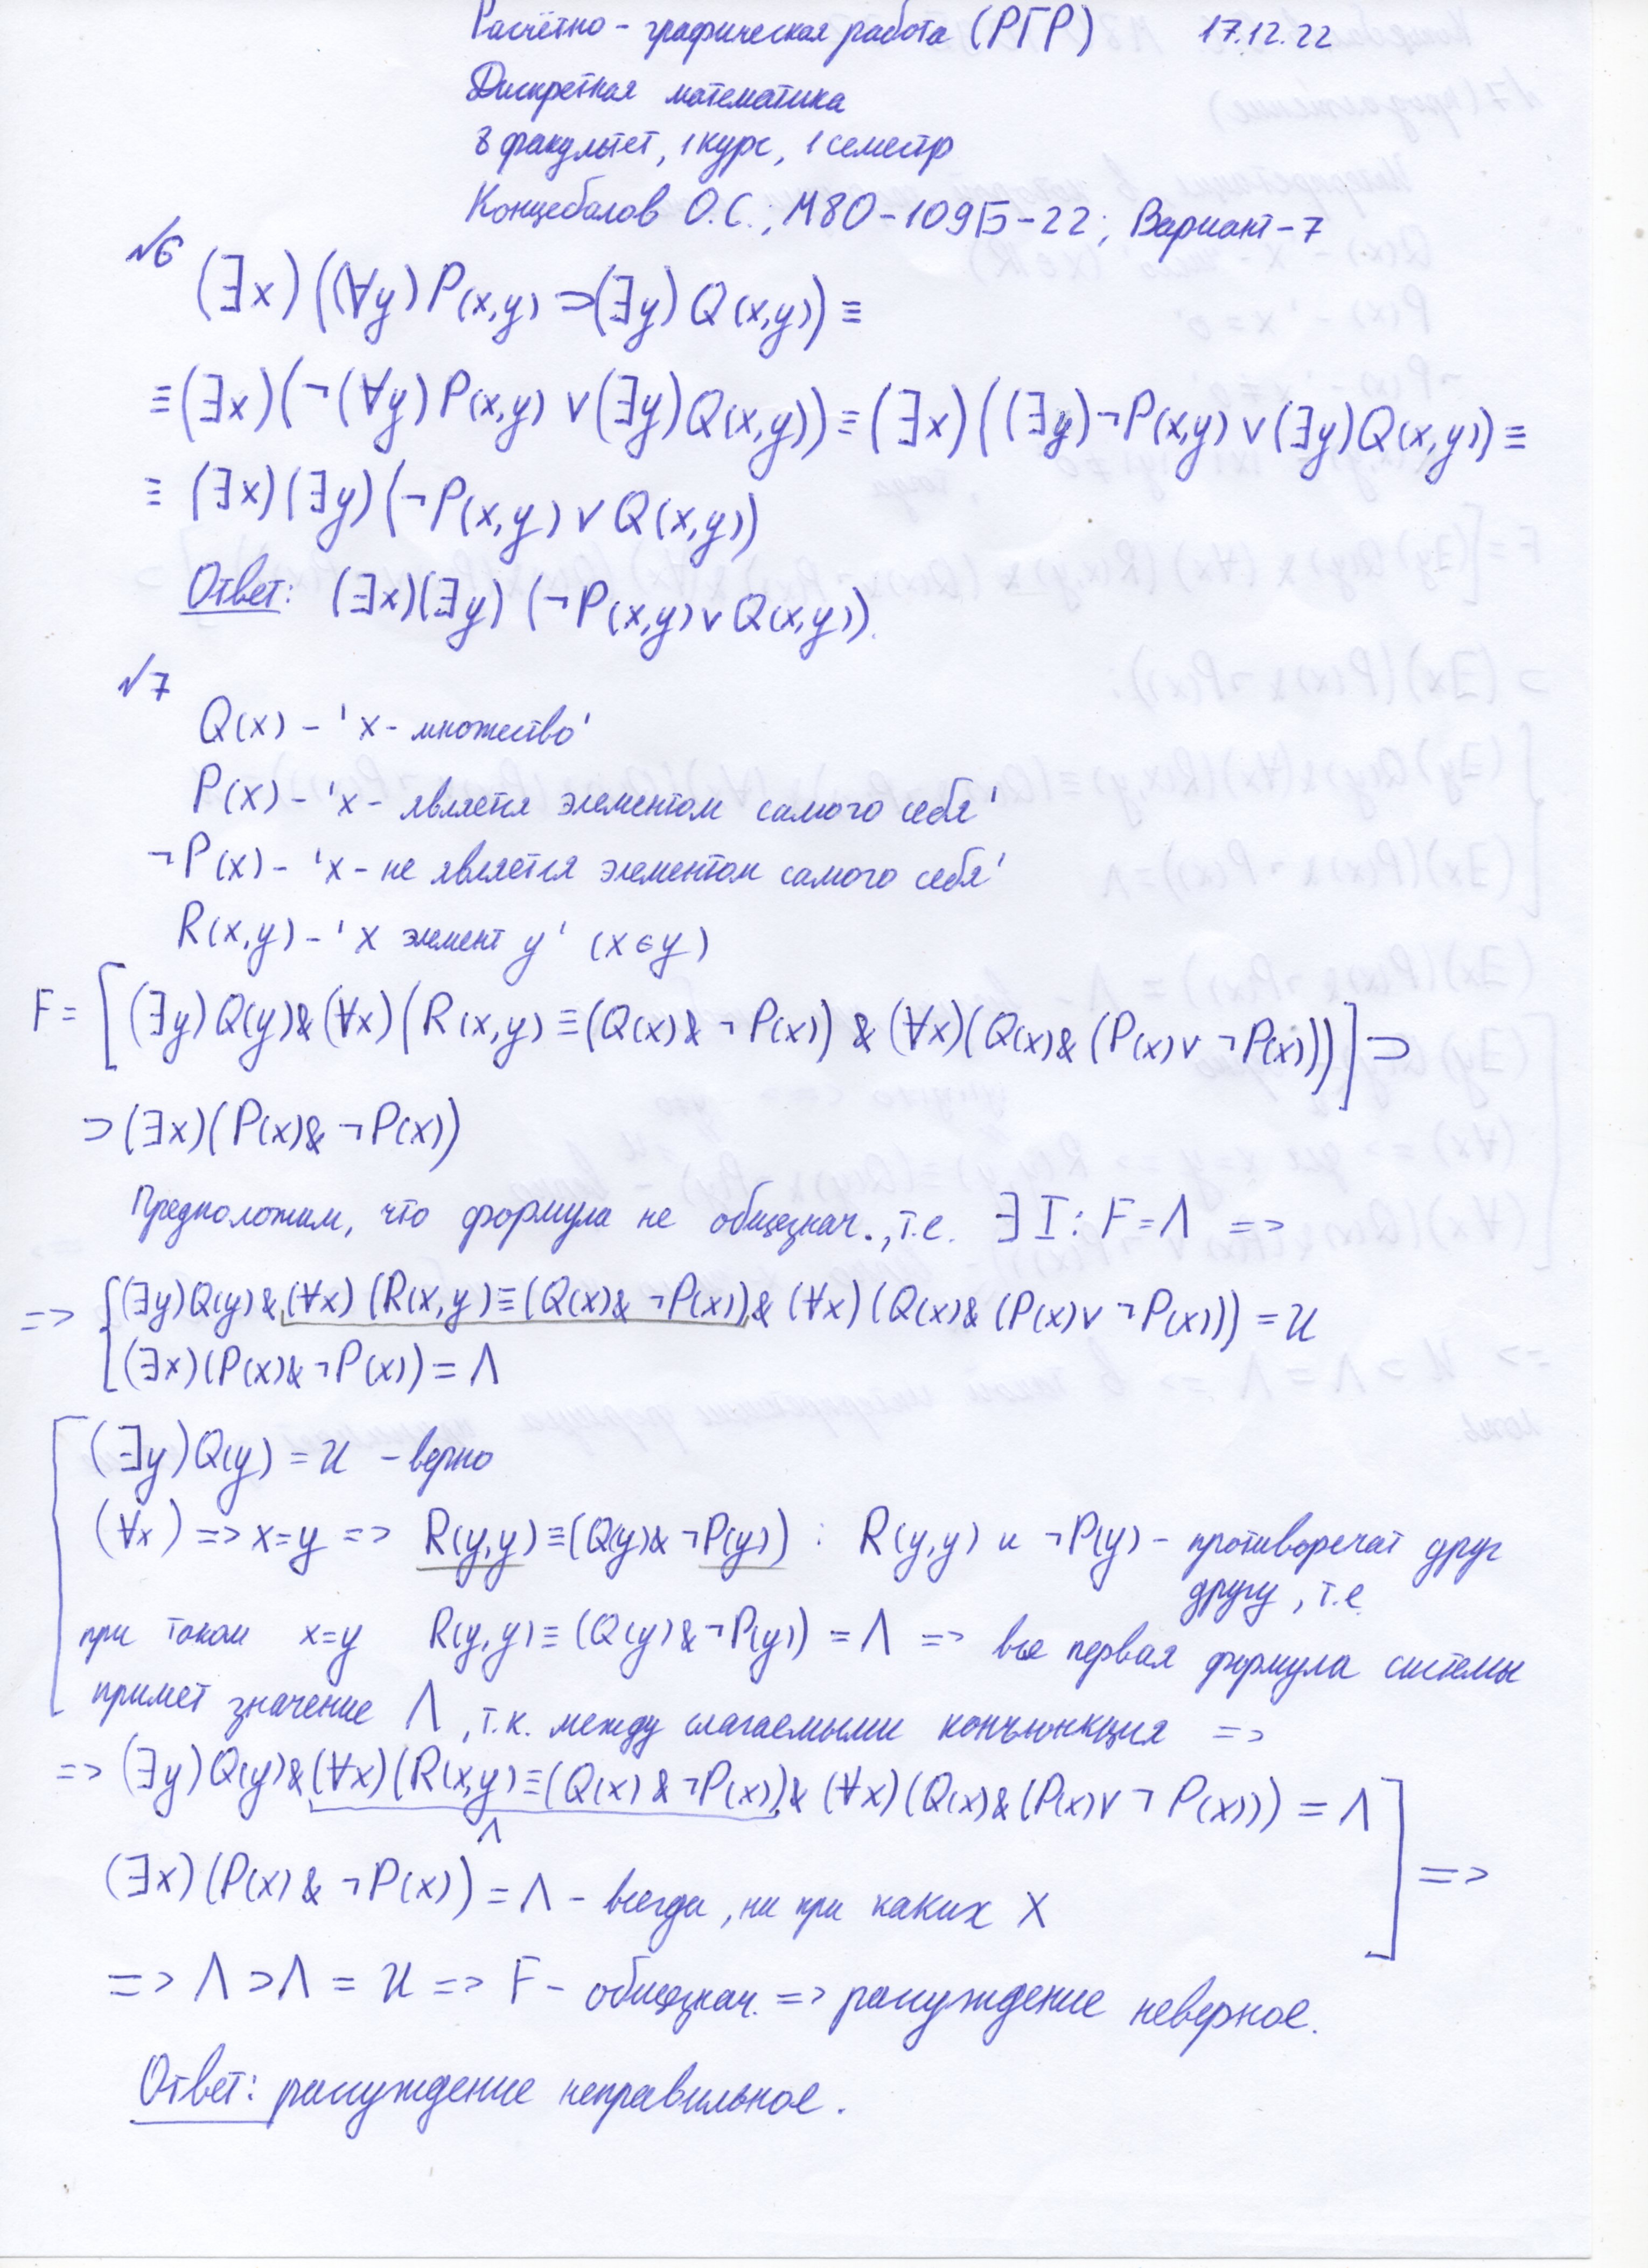 Расчётно-графическая работа (РГР) 17.12.22
Дискретная математика
8 факультет, 1 курс, 1 семестр
Концебалов О.С.; М8О-109Б-22; Вариант-7
№6 (∃x)((∀y)P(x,y) ⊃ (∃y)Q(x,y)) ≡
≡ (∃x)(¬(∀y)P(x,y) ∨ (∃y)Q(x,y)) ≡ (∃x)((∃y)¬P(x,y) ∨ (∃y)Q(x,y)) ≡
≡ (∃x)(∃y)(¬P(x,y) ∨ Q(x,y))
Ответ: (∃x)(∃y)(¬P(x,y) ∨ Q(x,y)).
№7
Q(x) - 'x - множество'
P(x) - 'x - является элементом самого себя'
¬P(x) - 'x - не является элементом самого себя'
R(x,y) - 'x элемент y' (x∈y)
F = [(∃y)Q(y)&(∀x)(R(x,y) ≡ (Q(x)& ¬P(x)) & (∀x)(Q(x)& (P(x)∨ ¬P(x)))] ⊃
⊃ (∃x)(P(x)& ¬P(x))
Предположим, что формула не общезнач., т.е. ∃ I: F = Λ =>
=> {(∃y)Q(y)&(∀x)(R(x,y) ≡ (Q(x)& ¬P(x))& (∀x)(Q(x)& (P(x)∨ ¬P(x))) = И
(∃x)(P(x)& ¬P(x)) = Λ
[(∃y)Q(y) = И - верно
(∀x) => x=y => R(y,y) ≡ (Q(y)& ¬P(y)) : R(y,y) и ¬P(y) - противоречат друг
другу, т.е.
при таком x=y R(y,y) ≡ (Q(y)& ¬P(y)) = Λ => вся первая формула системы
примет значение Λ, т.к. между слагаемыми конъюнкция =>
=> (∃y)Q(y)&(∀x)(R(x,y) ≡ (Q(x) & ¬P(x))& (∀x)(Q(x)& (P(x)∨ ¬P(x))) = Λ
Λ
(∃x)(P(x) & ¬P(x)) = Λ - всегда, ни при каких x ] =>
=> Λ ⊃ Λ = И => F - общезнач. => рассуждение неверное.
Ответ: рассуждение неправильное.